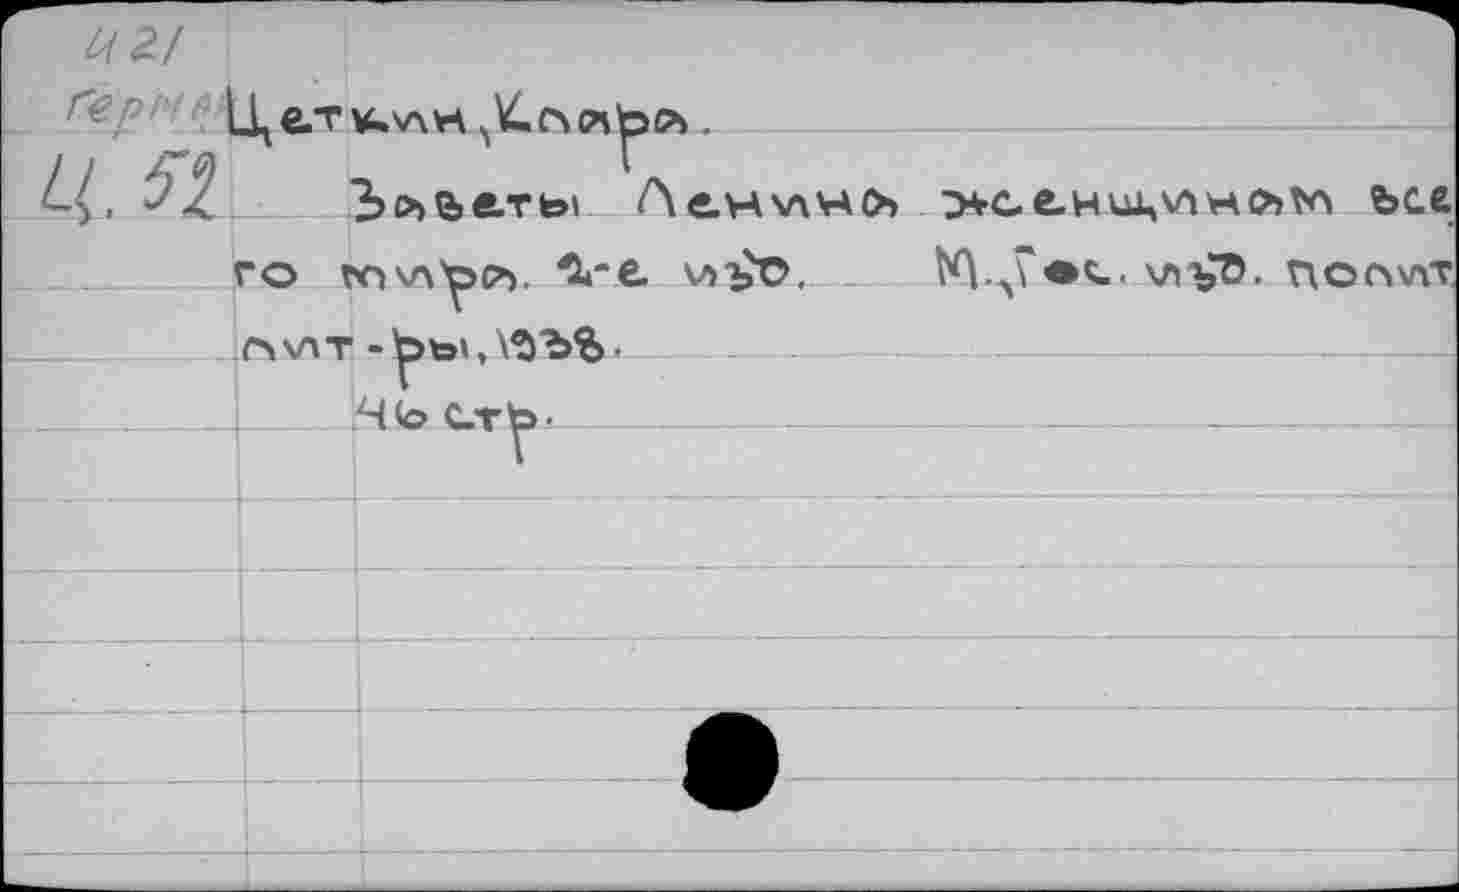 И21
Герм
Ц.52
Цеткин, Клара.
Заветы Ленина женщинам все
го мира. 2-е изд. М., Гос. изд. полит
лит-ры, 1958.
40 стр.